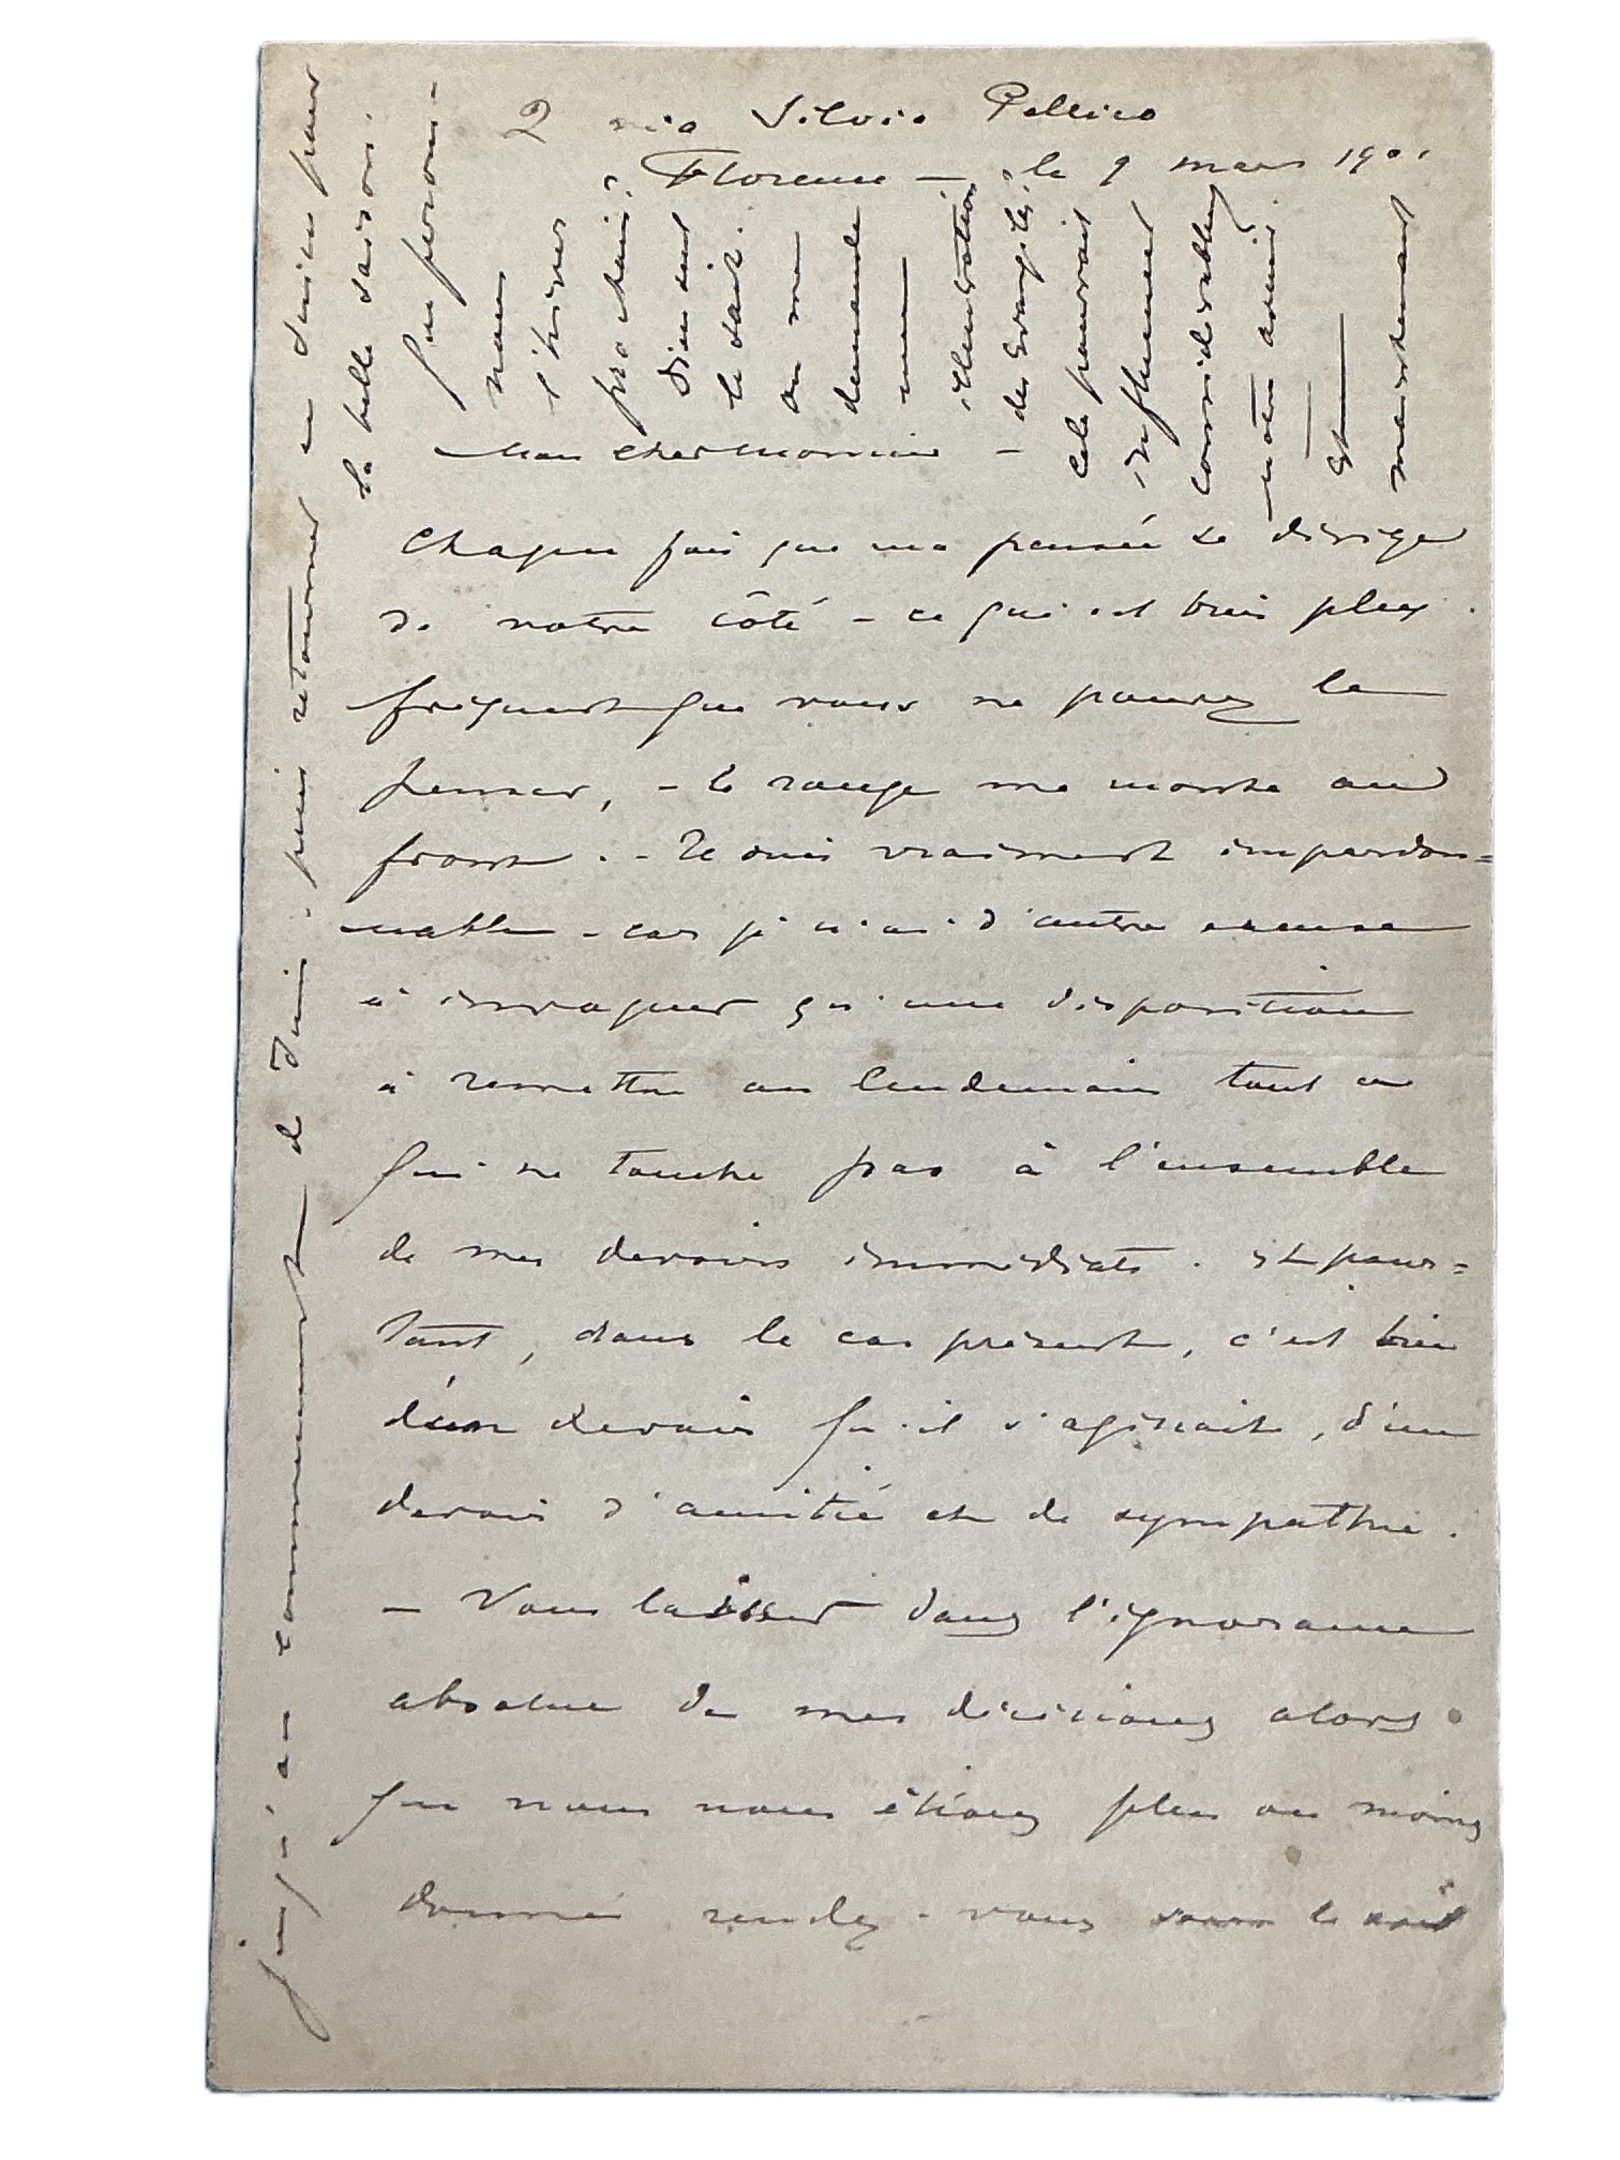 2 via Silvio Pellico
Florence — le 9 mars 1901
Mon cher Monsieur —
Chaque fois que ma pensée se dirige
de votre côté – ce qui est bien plus
fréquent que vous ne pouvez le
penser, – le rouge me monte au
front. – Je suis vraiment impardon=
nable – car je n'ai d'autre excuse
à invoquer qu'une disposition
à remettre au lendemain tout ce
qui ne touche pas à l'ensemble
de mes devoirs immédiats. Et pour=
tant, dans le cas présent, c'est bien
d'un devoir qu'il s'agissait, d'un
devoir d'amitié et de sympathie.
– Vous laisser dans l'ignorance
absolue de mes décisions alors
que nous nous étions plus ou moins
donné rendez-vous sous le
jusqu'au commencement de Juin. puis retourner en Suisse pour
la belle saison.
Que ferons-
nous
l'hiver
prochain?
Dieu seul
le sait.
on me
demande
une
illustration
des Evangiles.
cela pourrait
influencer
considérablement
notre avenir.
Et
maintenant